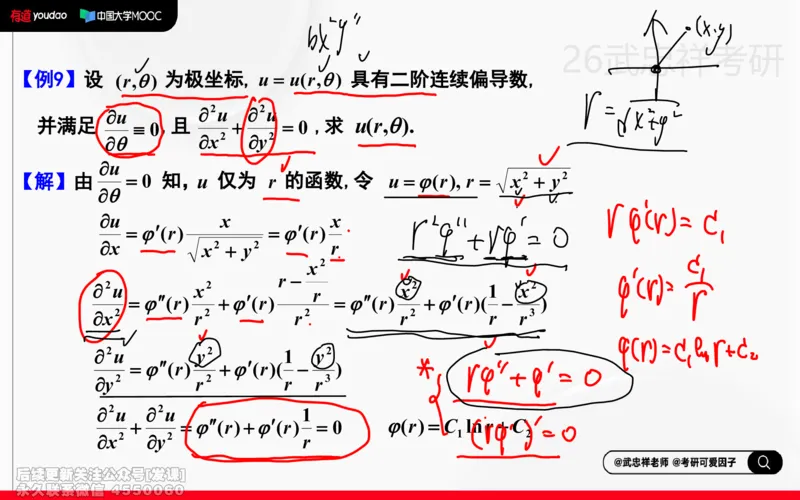 有道 youdao 中国大学MOOC
bx²y″
(x,y)
26武忠祥考研
【例9】设 (r,θ) 为极坐标, u = u(r,θ) 具有二阶连续偏导数,
r = √x²+y²
并满足 ∂u/∂θ ≡ 0, 且 ∂²u/∂x² + ∂²u/∂y² = 0 , 求 u(r,θ).
【解】由 ∂u/∂θ = 0 知, u 仅为 r 的函数, 令 u = φ(r), r = √x² + y²
∂u/∂x = φ′(r) x/√x² + y² = φ′(r) x/r
r²φ″ + rφ′ = 0
rφ′(r) = C₁
∂²u/∂x² = φ″(r) x²/r² + φ′(r) (r − x²/r)/r² = φ″(r) x²/r² + φ′(r)(1/r − x²/r³)
φ′(r) = C₁/r
∂²u/∂y² = φ″(r) y²/r² + φ′(r)(1/r − y²/r³)
φ(r) = C₁ ln r + C₂
* rφ″ + φ′ = 0
∂²u/∂x² + ∂²u/∂y² = φ″(r) + φ′(r) 1/r = 0 φ(r) = C₁ ln r + C₂
(rφ′)′ = 0
@武忠祥老师 @考研可爱因子
后续更新关注公众号[发课]
永久联系微信 4550060